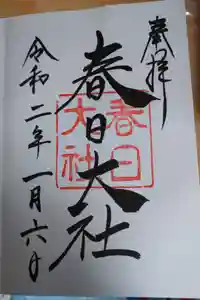 奉拝
春日大社
春日大社
令和二年一月六日